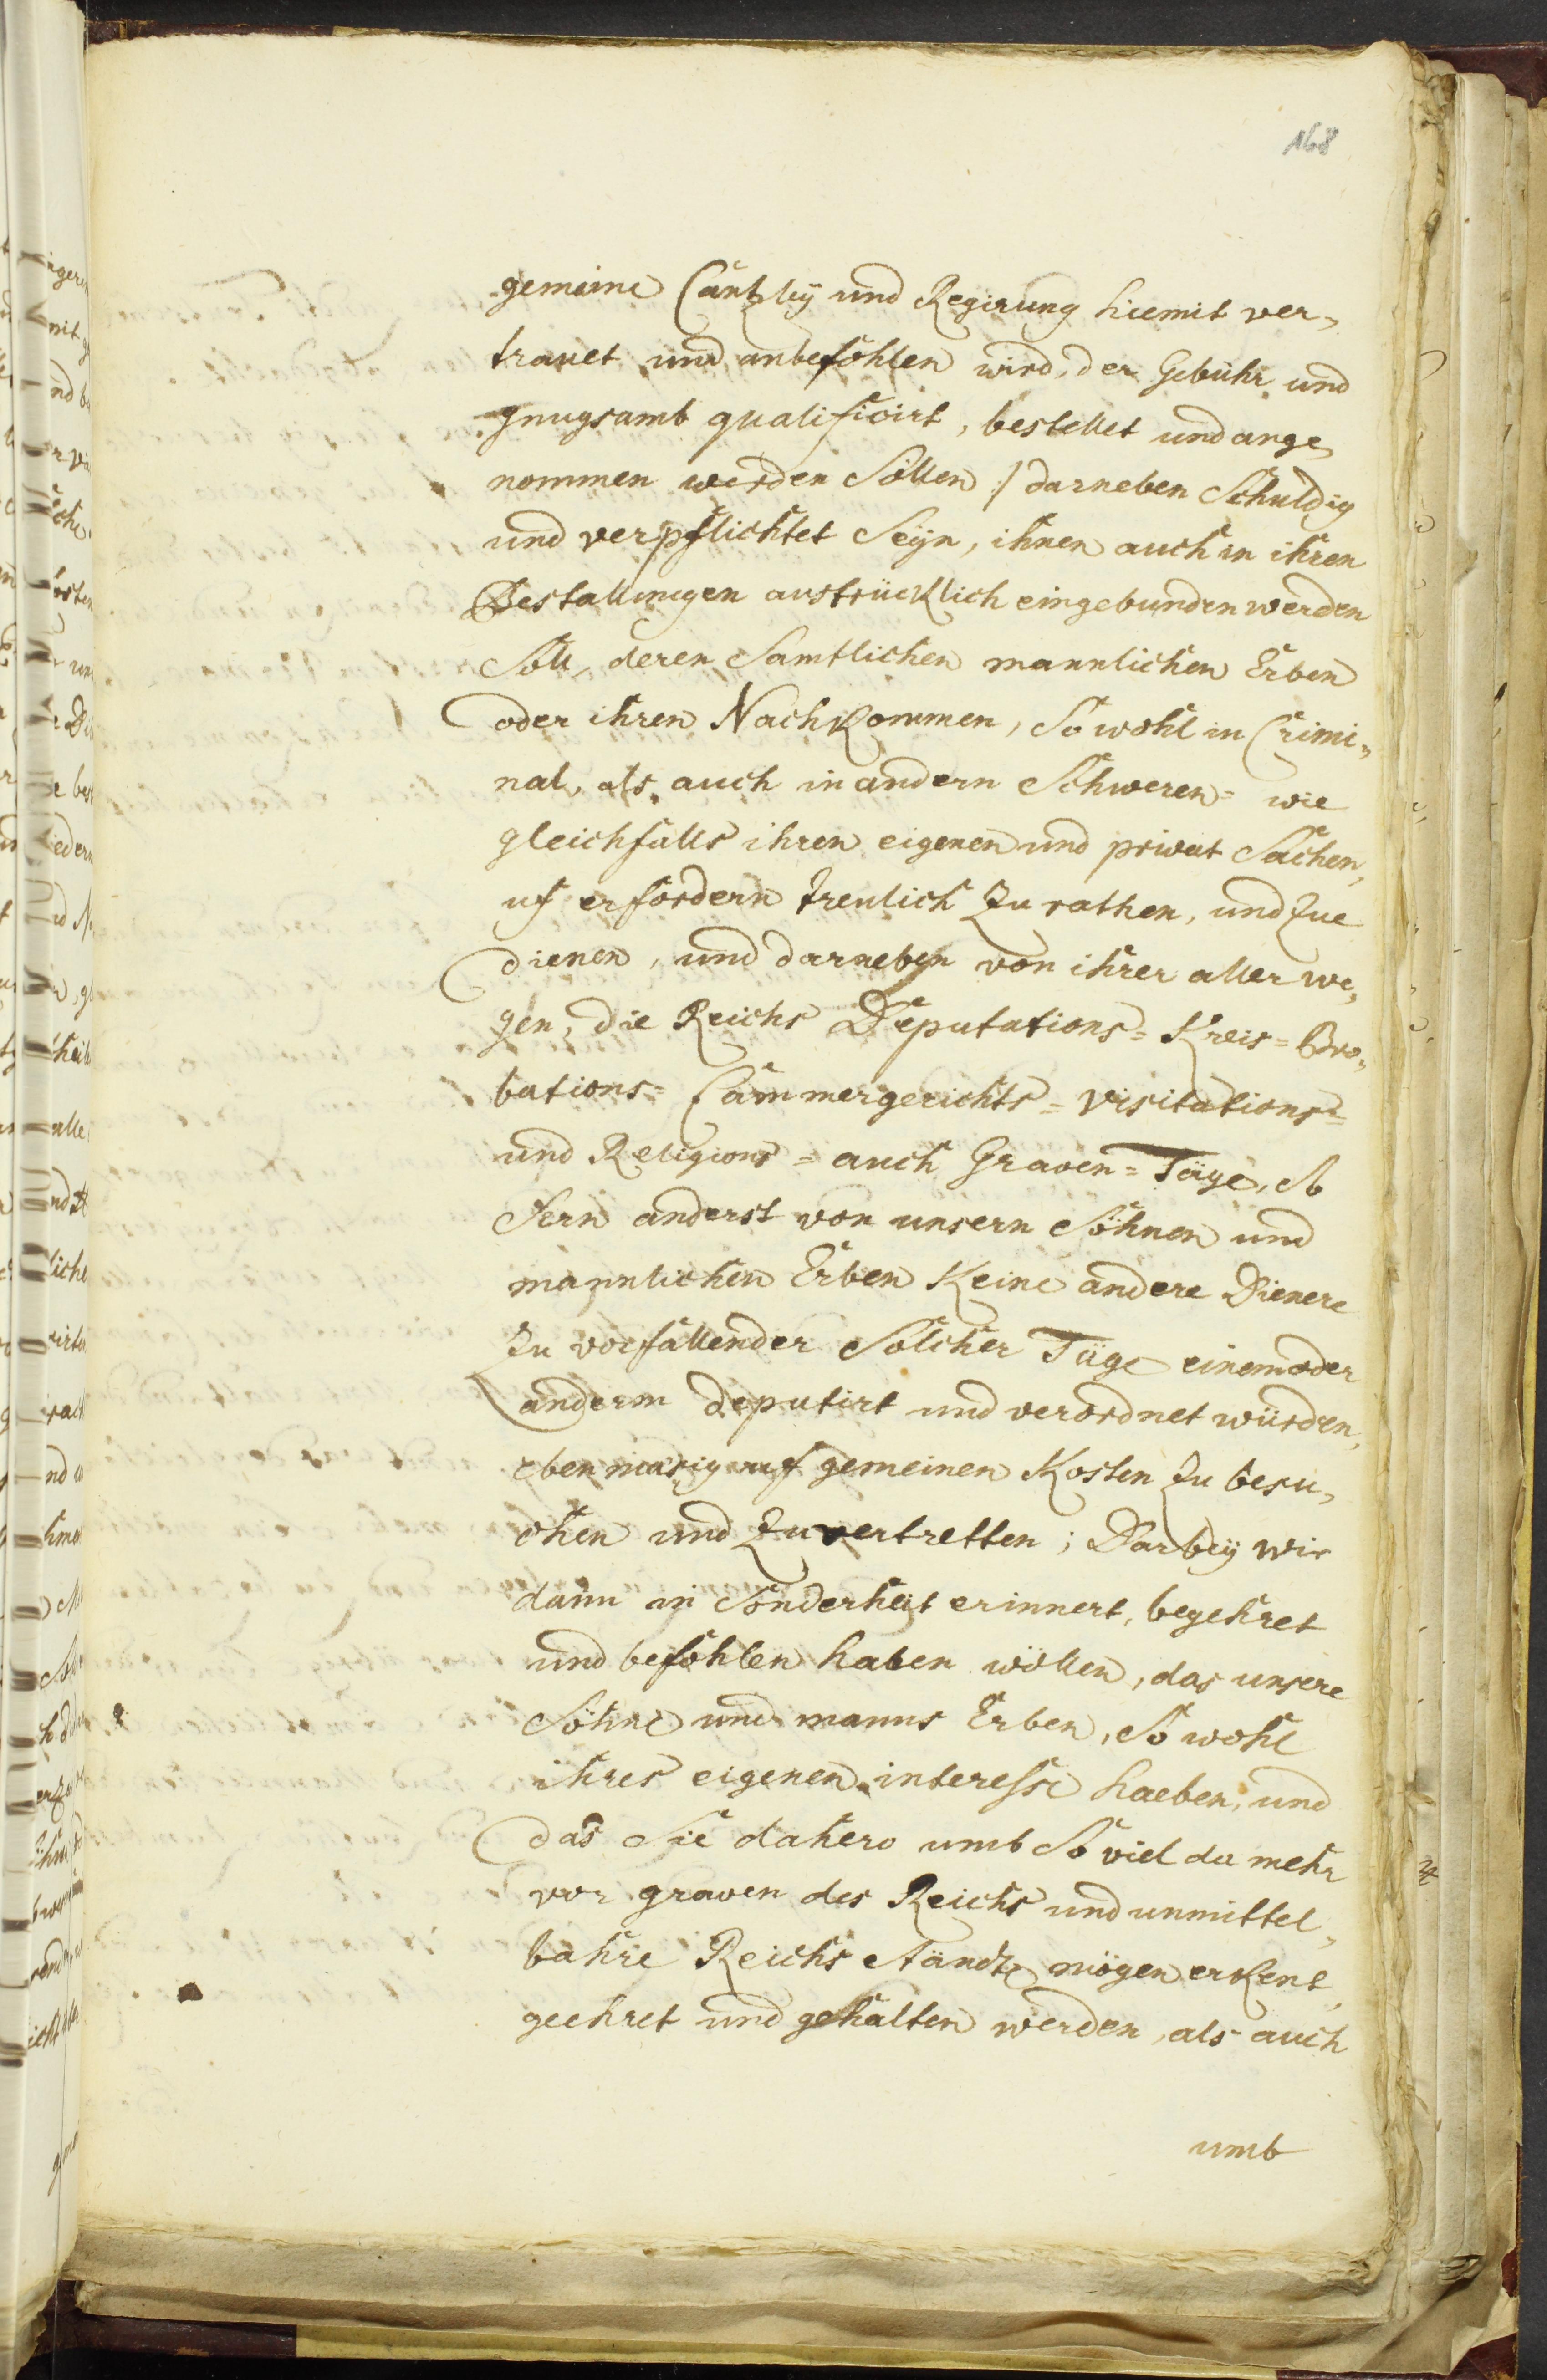 168
gemeine Cantzleÿ und Regirung hiemit ver„
trauet und anbefohlen wird, der Gebühr und
gnugsamb qualificirt, bestellet und ange„
nommen werden Sollen :/ darneben Schuldig
und verpflichtet Seÿn, ihnen auch in ihren
Bestallungen austrücklich eingebunden werden
Soll, deren Samtlichen mannlichen Erben
oder ihren Nachkommen, So wohl in Crimi„
nal, als auch in andern Schweren= wie
gleichfalls ihren eigenen und privat Sachen,
uf erfordern treulich Zu rathen, und Zue
dienen, und darneben von ihrer aller we„
gen, die Reichs Deputations= Kreis= Pro„
bations= Cammergerichts= Visitations=
und Religions= auch Graven= Täge, So
Fern anderst von unsern Söhnen und
mannlichen Erben Keine andere Dienere
Zu vorfallender Solcher Täge einem oder
anderm deputirt und verordnet würden,
ebenmäsig auf gemeinen Kosten Zu besu„
chen und Zuvertretten; Darbeÿ wir
dann in Sonderheit erinnert, begehret
und befohlen haben wöllen, das unsere
Söhne und manns Erben, So wohl
ihres eigenen interesse haeben, und
das Sie dahero umb So viel da mehr
vor graven des Reichs und unmittel„
bahre Reichs Ständte mögen erkent,
geehret und gehalten werden, als auch
umb